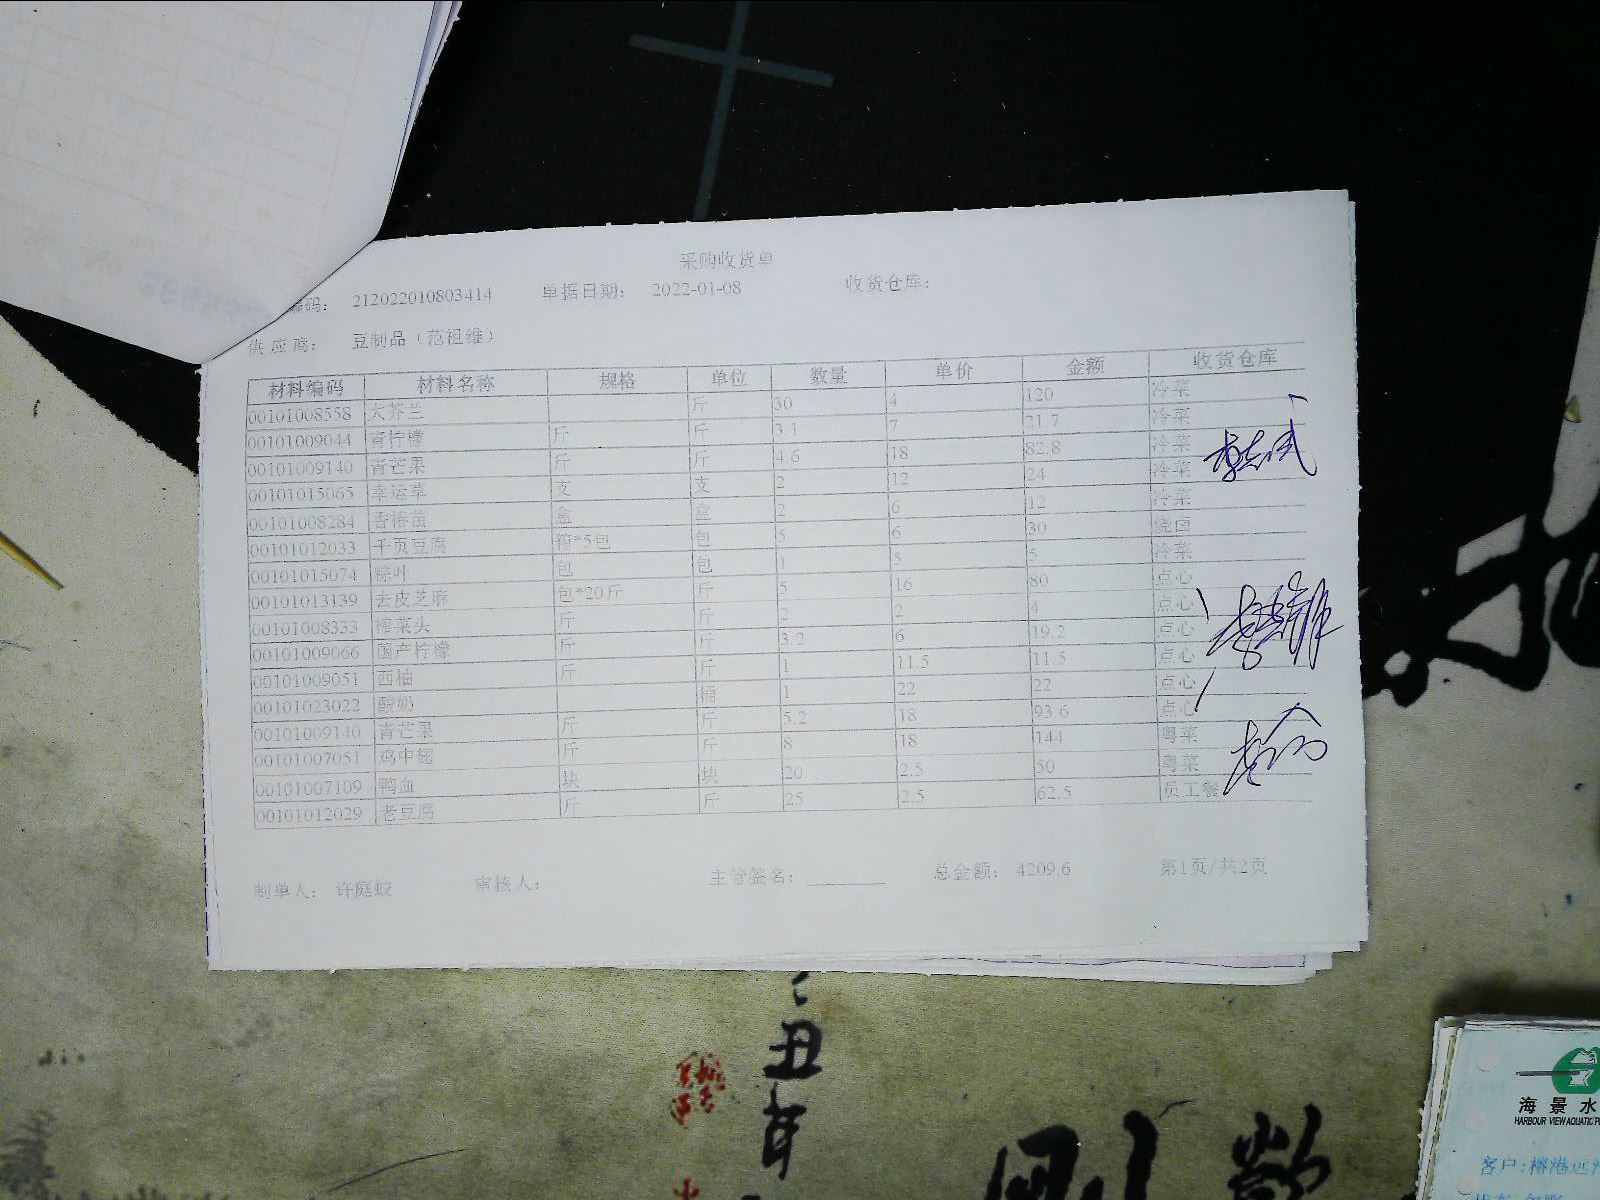 采购收货单
编码： 212022010803414 单据日期： 2022-01-08 收货仓库：
供应商： 豆制品（范祖维）
材料编码 材料名称 规格 单位 数量 单价 金额 收货仓库
00101008558 大芥兰 斤 30 4 120 冷菜
00101009044 青柠檬 斤 斤 3.1 7 21.7 冷菜
00101009140 青芒果 斤 斤 4.6 18 82.8 冷菜
00101015065 幸运草 支 支 2 12 24 冷菜
00101008284 香椿苗 盒 盒 2 6 12 冷菜
00101012033 千页豆腐 箱*5包 包 5 6 30 烧卤
00101015074 粽叶 包 包 1 5 5 冷菜
00101013139 去皮芝麻 包*20斤 斤 5 16 80 点心
00101008333 榨菜头 斤 斤 2 2 4 点心
00101009066 国产柠檬 斤 斤 3.2 6 19.2 点心
00101009051 西柚 斤 斤 1 11.5 11.5 点心
00101023022 酸奶 桶 1 22 22 点心
00101009140 青芒果 斤 斤 5.2 18 93.6 点心
00101007051 鸡中翅 斤 斤 8 18 144 粤菜
00101007109 鸭血 块 块 20 2.5 50 粤菜
00101012029 老豆腐 斤 斤 25 2.5 62.5 员工餐
制单人： 许庭蛟 审核人： 主管签名： 总金额： 4209.6 第1页/共2页
丑年
海景水
HARBOUR VIEW AQUATIC P
客户：榕港